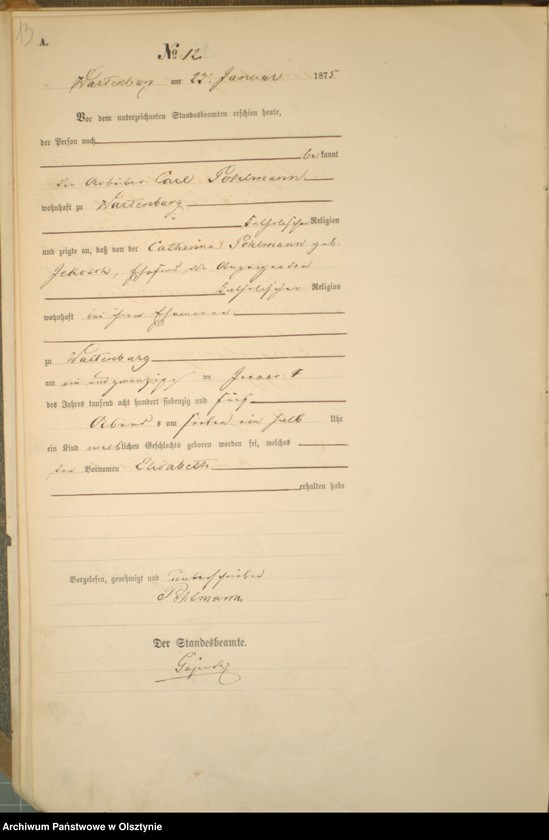 13
A.
No 12
Wartenburg am 23. Januar 1875
Vor dem unterzeichneten Standesbeamten erschien heute,
der Person nach
bekannt
der Arbeiter Carl Pohlmann
wohnhaft zu Wartenburg
katholischer Religion
und zeigte an, daß von der Catharina Pohlmann geb.
Ehefrau des Anzeigenden
katholischer Religion
wohnhaft bei ihrem Ehemanne
zu Wartenburg
am ein und zwanzigsten Januar
des Jahres tausend acht hundert siebenzig und fünf
Abends um sieben ein halb Uhr
ein Kind weiblichen Geschlechts geboren worden sei, welches
den Vornamen Elisabeth
erhalten habe
Vorgelesen, genehmigt und unterschrieben
Pohlmann
Der Standesbeamte.
Archiwum Państwowe w Olsztynie